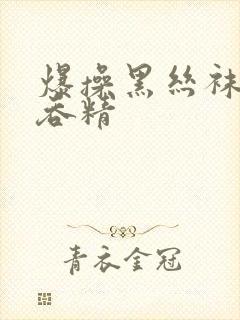 爆操黑丝袜
吞精
青衣金冠